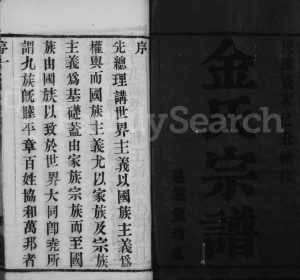 民國
金氏宗譜
追遠堂珍藏
序
先總理講世界主義以國族主義爲
權輿而國族主義尤以家族及宗族
主義爲基礎蓋由家族宗族而至國
族由國族以致於世界大同卽堯所
謂九族旣睦平章百姓協和萬邦者
序
Search